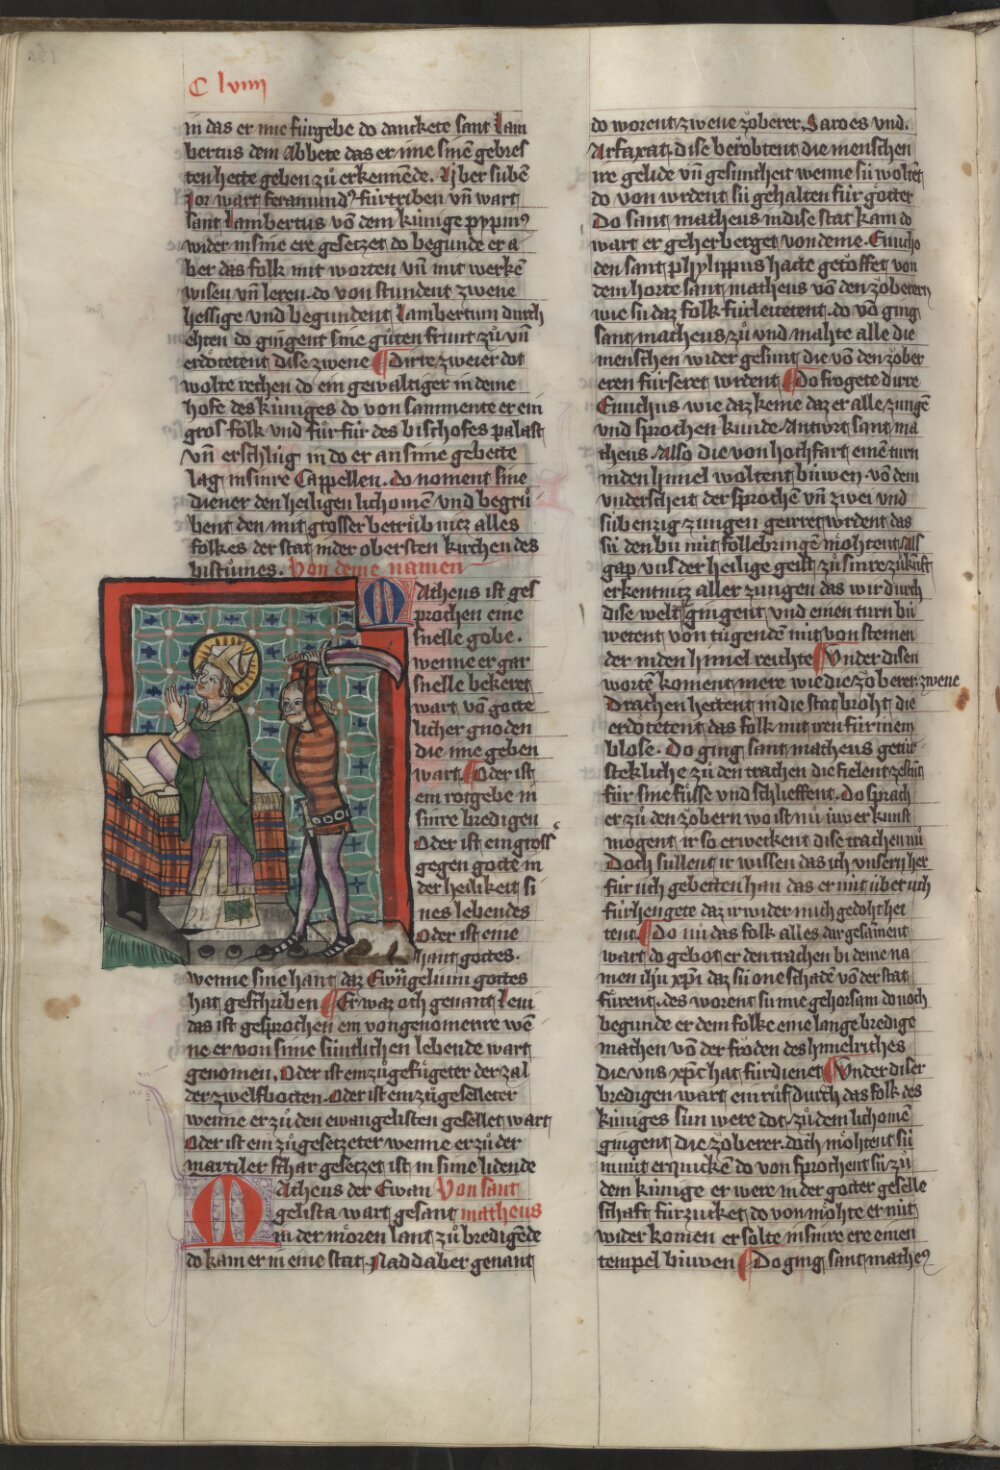 C lviiij
in das er ime fürgebe do danckete sant Lam
bertus dem Abbete das er ime sinē gebres
ten hette geben zů erkennēde. Vber sübē
Jor wart feramundꝰ fürtriben vn̄ wart
sant Lambertus vō dem künige pypinꝰ
wider in sine ere gesetzet do begunde er a
ber das folk mit worten vn̄ mit werkē
wisen vn̄ leren. do von stundent zwene
hessige vnd begundent Lambertum durch
ehten do gingent sine gůten frunt zů vn̄
erdötetent dise zwene Dirre zweier dot
wolte rechen do ein gewaltiger in deme
hofe des küniges do von sammente er ein
gros folk vnd fůr für des bischofes palast
vn̄ erschlůg in do er an sime gebette
lag in sinre Cappellen. do noment sine
diener den heiligen lichomē vnd begrů
bent den mit grosser betrůbnitz alles
folkes der stat in der obersten kirchen des
bistůmes. Von deme namen
Matheus ist ges
prochen eine
snelle gobe.
wenne er gar
snelle bekeret
wart vō gotte
licher gnoden
die ime geben
wart Oder ist
ein rotgebe in
sinre bredigen
Oder ist ein gross
gegen gotte in
der heilikeit si
nes lebendes
Oder ist eine
hant gottes.
wenne sine hant daz Ewangelium gottes
hat geschriben Er waz och genant Leui
das ist gesprochen ein vongenomenre wē
ne er von sime süntlichen lebende wart
genomen. Oder ist ein zůgefügeter der zal
der zwelfbotten. Oder ist ein zůgeselleter
wenne er zů den ewangelisten gesellet wart
Oder ist ein zůgesetzeter wenne er zů der
martiler schar gesetzet ist in sime lidende
Matheus der Ewan Von sant
gelista wart gesant matheus
in der môren lant zů bredigēde
do kam er in eine stat. Naddaber genant
do worent zwene zöberer. Saroes vnd.
Arfaxat. dise berobtent die menschen
ire gelide vn̄ gesuntheit wenne sü woltēt
do von wrdent sü gehalten für götter
Do sant matheus in dise stat kam do
wart er geherberget von deme. Enucho
den sant phylippus hatte getöffet von
dem horte sant matheus vō den zöberern
wie sü daz folk fürleitetent. do vō ging
sant matheus zů vnd mahte alle die
menschen wider gesunt die vō den zöber
eren fürseret wrdent Do frogete dirre
Enuchus wie daz keme daz er alle zungē
vnd sprochen kunde. Antwurt sant ma
theus. Also die von hochfart einē turn
in den himel woltent büwen. vō dem
vnderscheit der sprochē vn̄ zwei vnd
sübenzig zungen geirret wrdent das
sü den bu nüt follebringē möhtent als
gap vns der heilige geist zů sinre zůkunft
erkentnitz aller zungen das wir durch
dise welt gingent vnd einen turn bu
wetent von tugendē nüt von steinen
der in den himel reichte Vnder disen
wortē koment mere wie die zöberer zwene
Drachen hettent in die stat broht die
erdötetent das folk mit iren fürinem
blose. Do ging sant matheus getür
stekliche zů den trachen die fielent zestůnt
für sine füsse vnd schlieffent. Do sprach
er zů den zöbern wo ist nů üwer kunst
mögent ir so erweckent dise trachen nů
Doch süllent ir wissen das ich vnsern her
für üch gebetten han das er nüt über üch
fürhengete daz ir wider mich gedoht het
tent. Do nů das folk alles dar gesament
wart do gebot er den trachen bi deme na
men ihū xp̄i daz sü one schadē vō der stat
fürent. des worent sü ime gehorsam do noch
begunde er dem folke eine lange bredige
machen vō der fröden des himelriches
die vns xp̄c hat fürdienet Vnder diser
bredigen wart ein růf durch das folk des
küniges sun were dot. zů dem lichomē
gingent die zöberer. doch möhtent sü
in nüt erquickē do von sprochent sü zů
dem künige er were in der götter geselle
schaft fürzucket do von möhte er nüt
wider komen er solte in sinre ere einen
tempel buwen Do ging sant matheꝰ